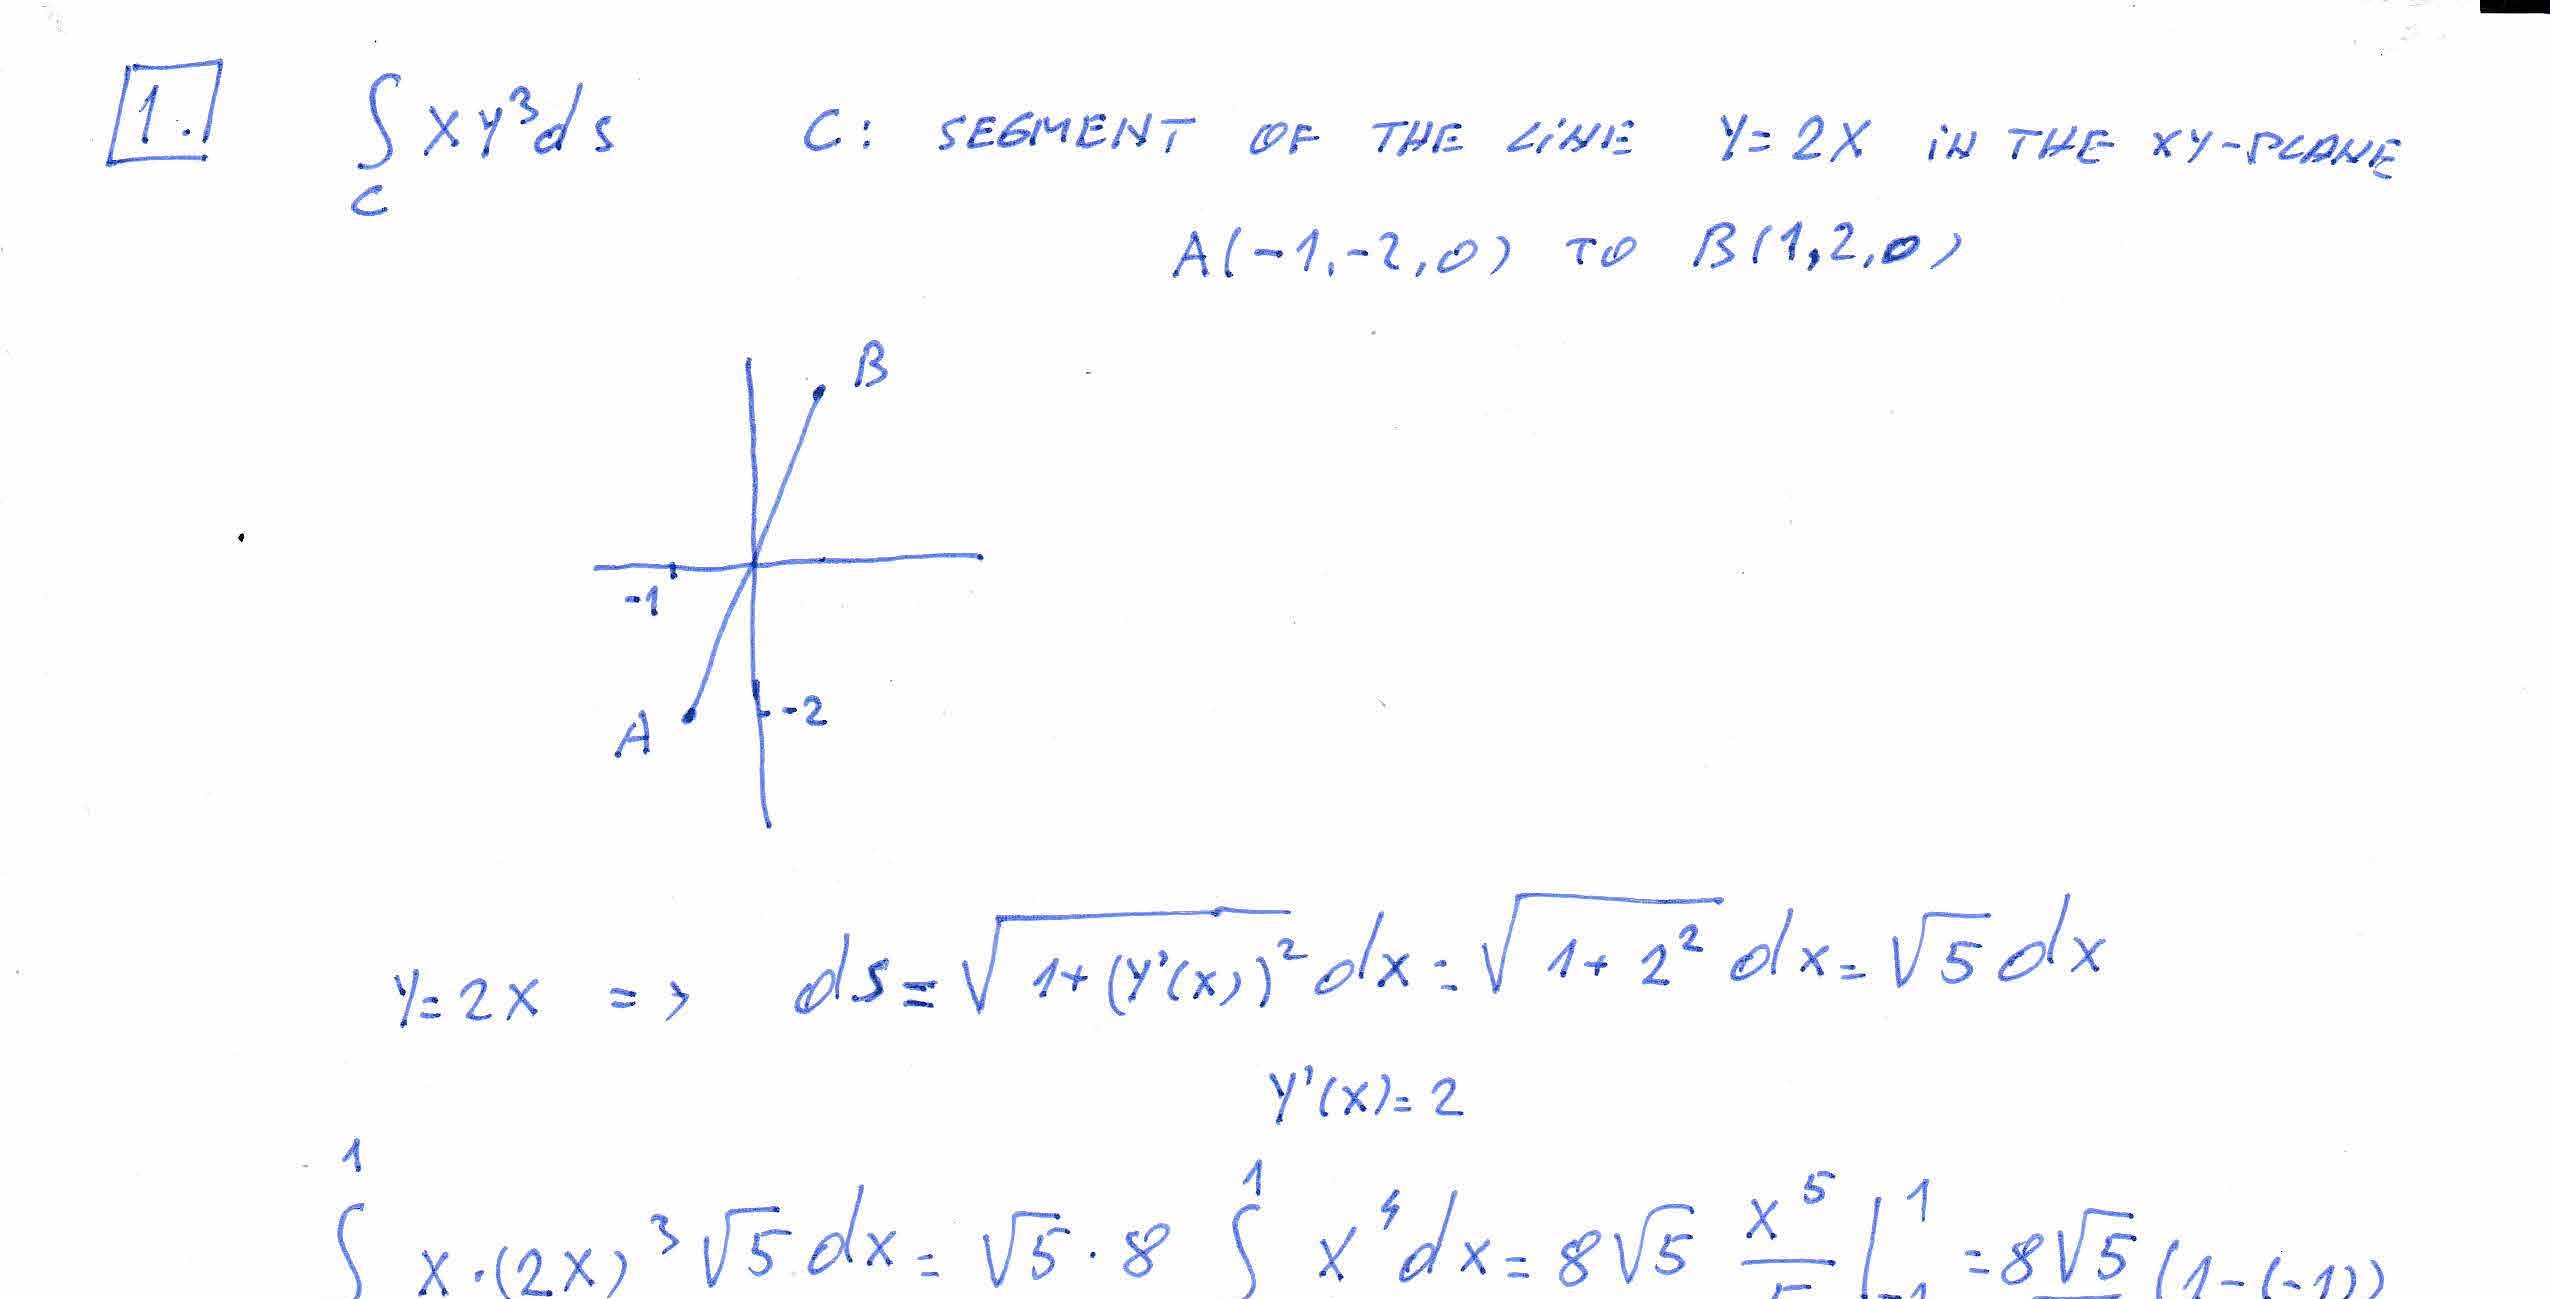 1. ∫ xy³ds C: SEGMENT OF THE LINE Y=2X IN THE XY-PLANE
C
A(-1,-2,0) TO B(1,2,0)
B
-1
A -2
Y=2X => ds=√1+(Y'(X))² dx=√1+2² dx=√5 dx
Y'(X)=2
1 1
∫ X·(2X)³√5 dx=√5·8 ∫ X⁴dx=8√5 X⁵/5 |₋₁¹ =8√5 (1-(-1))